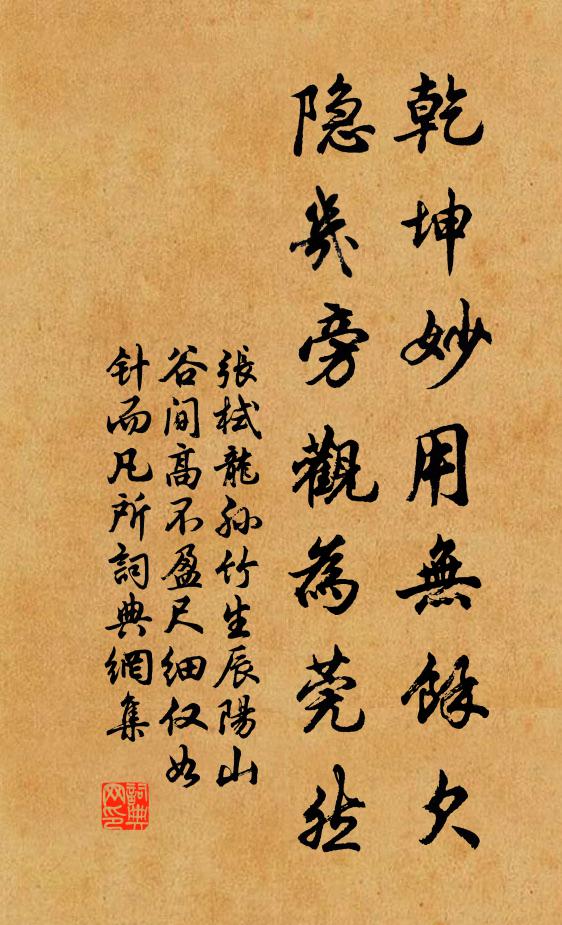 乾坤妙用無餘欠
隐幾旁觀為莞然
張栻龍孙竹生辰陽山
谷间高不盈尺细仅如
针而凡所詞典網集
詞典
网印